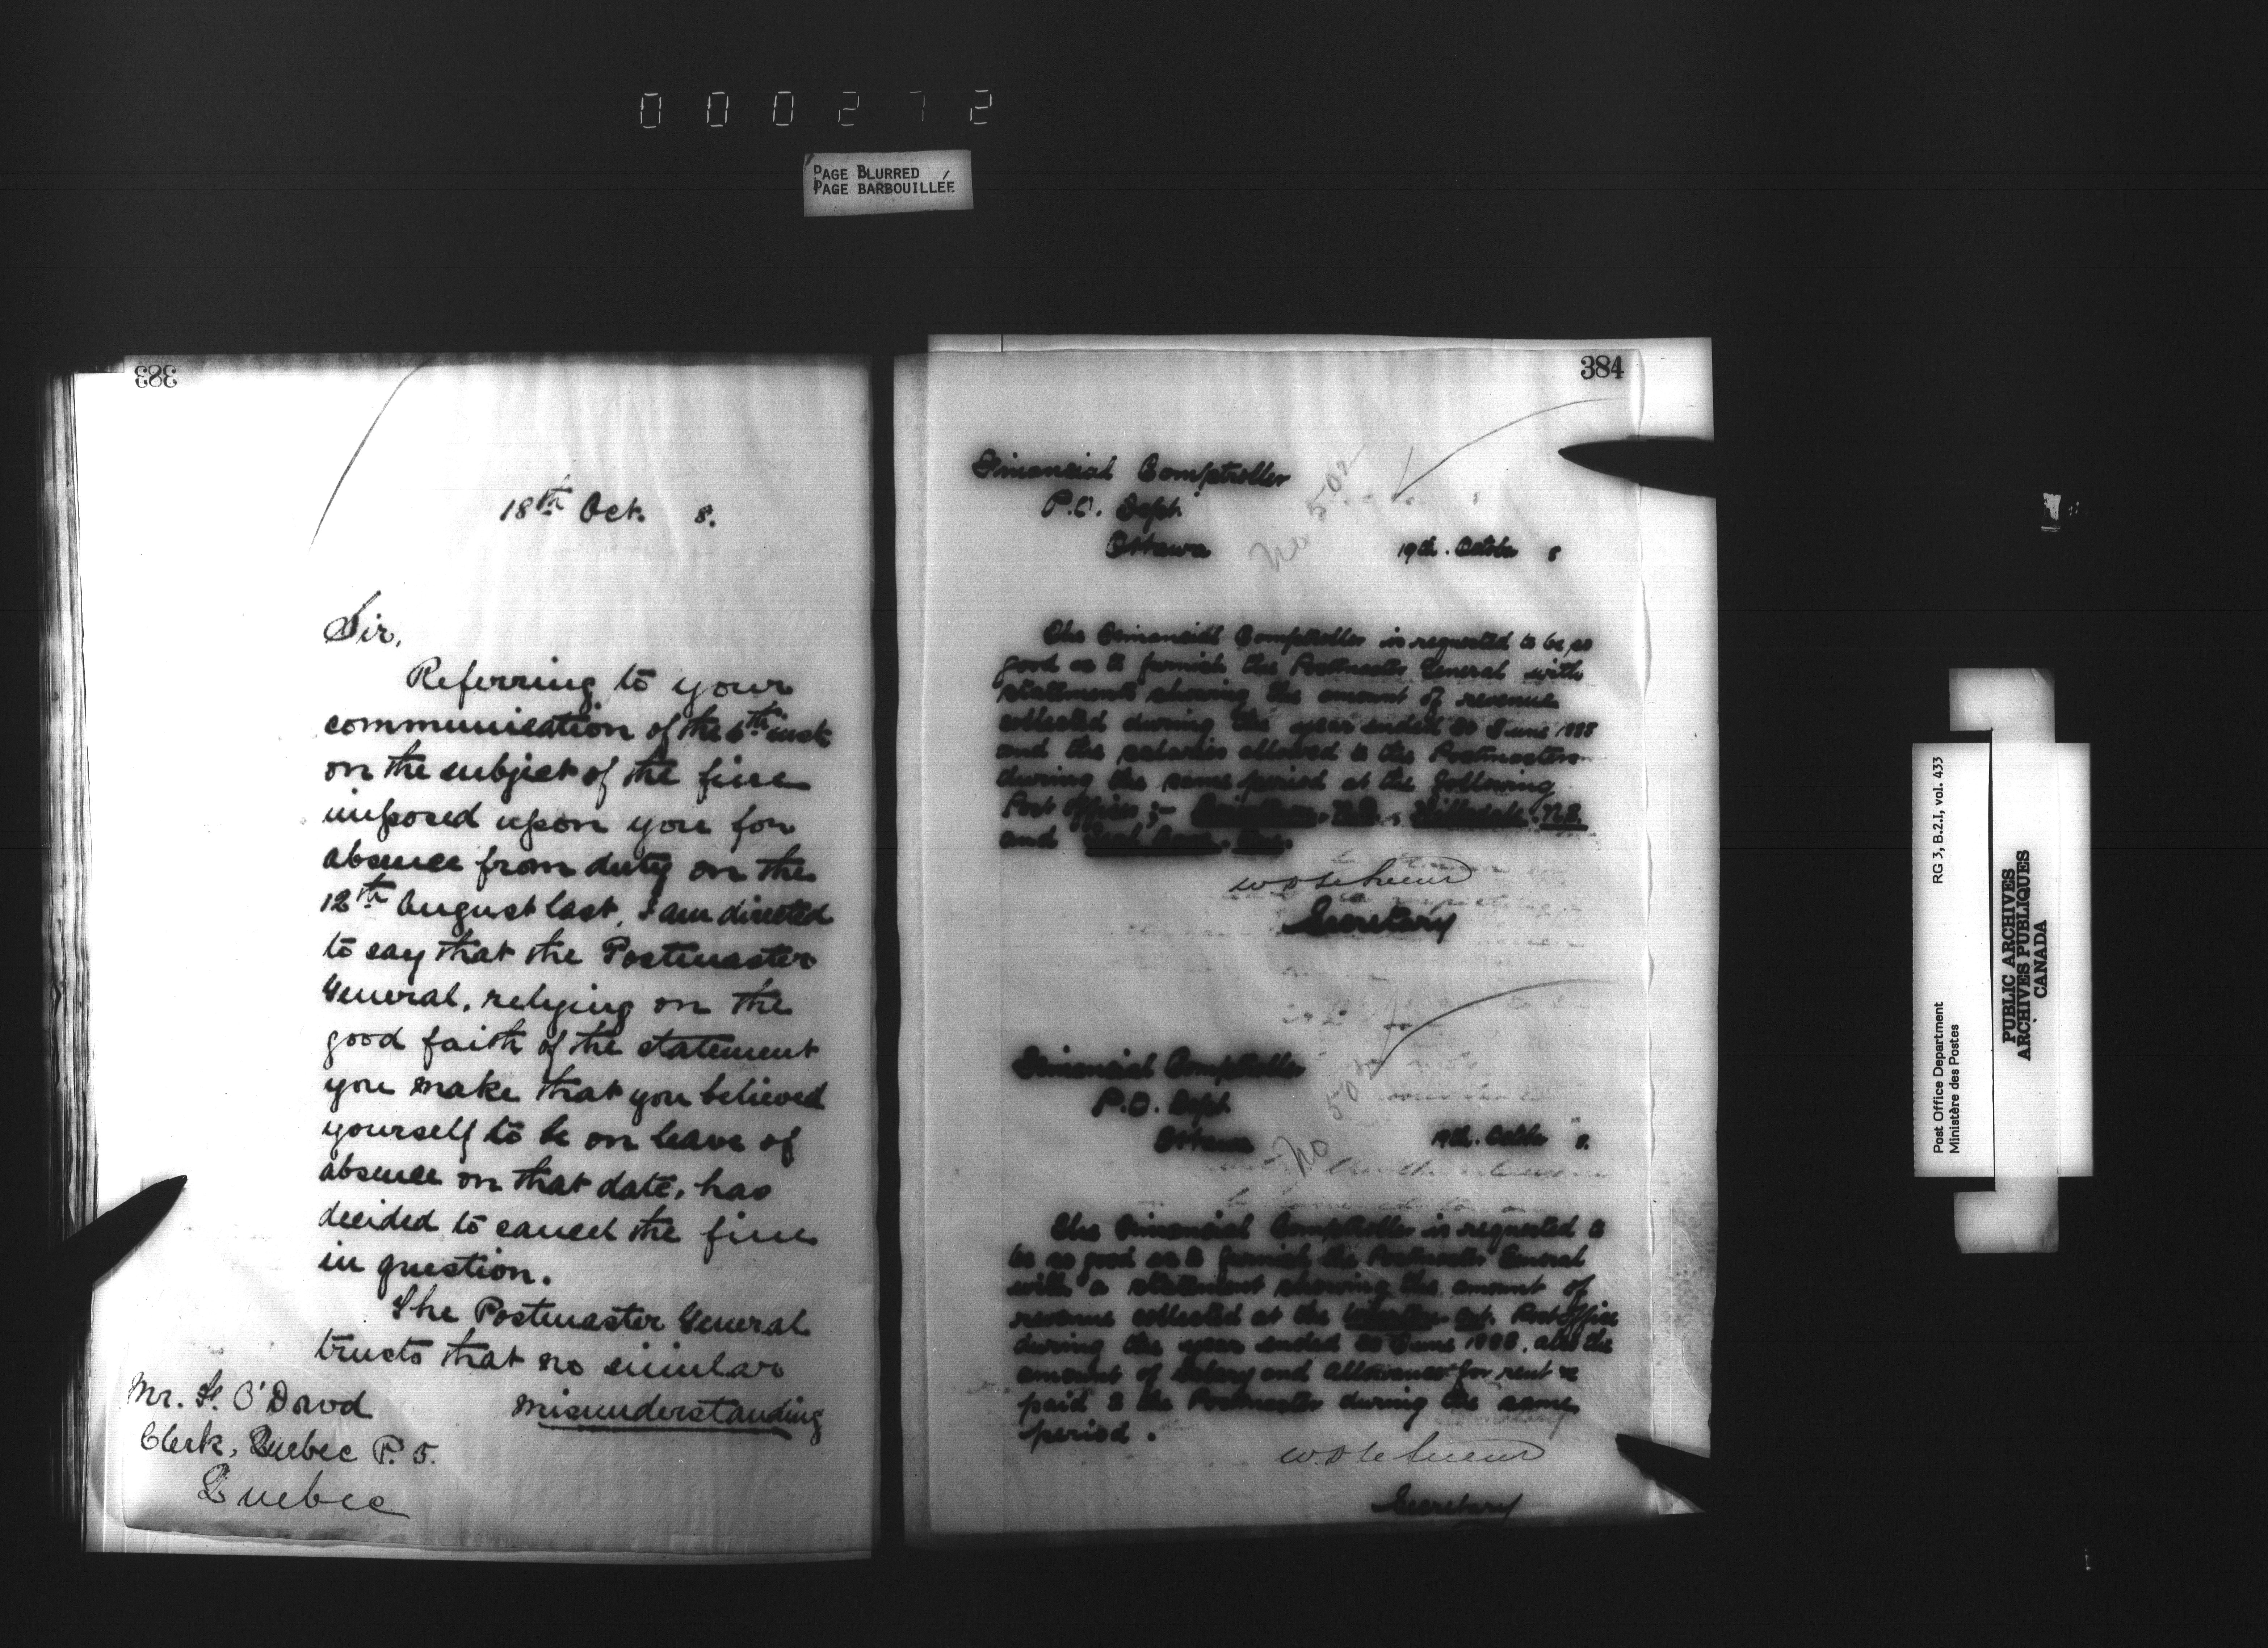 000272
PAGE BLURRED
PAGE BARBOUILLÉE
383
18th Oct. 8.
Sir,
Referring to your
communication of the 6th inst.
on the subject of the fine
imposed upon you for
absence from duty on the
12th August last, I am directed
to say that the Postmaster
General, relying on the
good faith of the statement
you make that you believed
yourself to be on leave of
absence on that date, has
decided to cancel the fine
in question.
The Postmaster General
trusts that no similar
misunderstanding
Mr. O'Dowd
Clerk, Quebec P. O.
Quebec
384
Financial Comptroller
P.O. Dept.
Ottawa
No 502
19th. October 8
The Financial Comptroller is requested to be so
good as to furnish the Postmaster General with
statements showing the amount of revenue
collected during the year ended 30 June 1888
and the salaries allowed to the Postmasters
during the same period at the following
Post Offices ;- N.B., Hillsdale, N.B.
and
W D LeSueur
Secretary
Financial Comptroller
P.O. Dept.
Ottawa
No 502
19th. October 8.
The Financial Comptroller is requested to
be so good as to furnish the Postmaster General
with a statement showing the amount of
revenue collected at the Ont. Post Office
during the year ended 30 June 1888, also the
amount of salary and allowance for rent &c
paid to the Postmaster during the same
period.
W. D LeSueur
Secretary
Post Office Department
Ministère des Postes
RG 3, B.2.I, vol. 433
PUBLIC ARCHIVES
ARCHIVES PUBLIQUES
CANADA